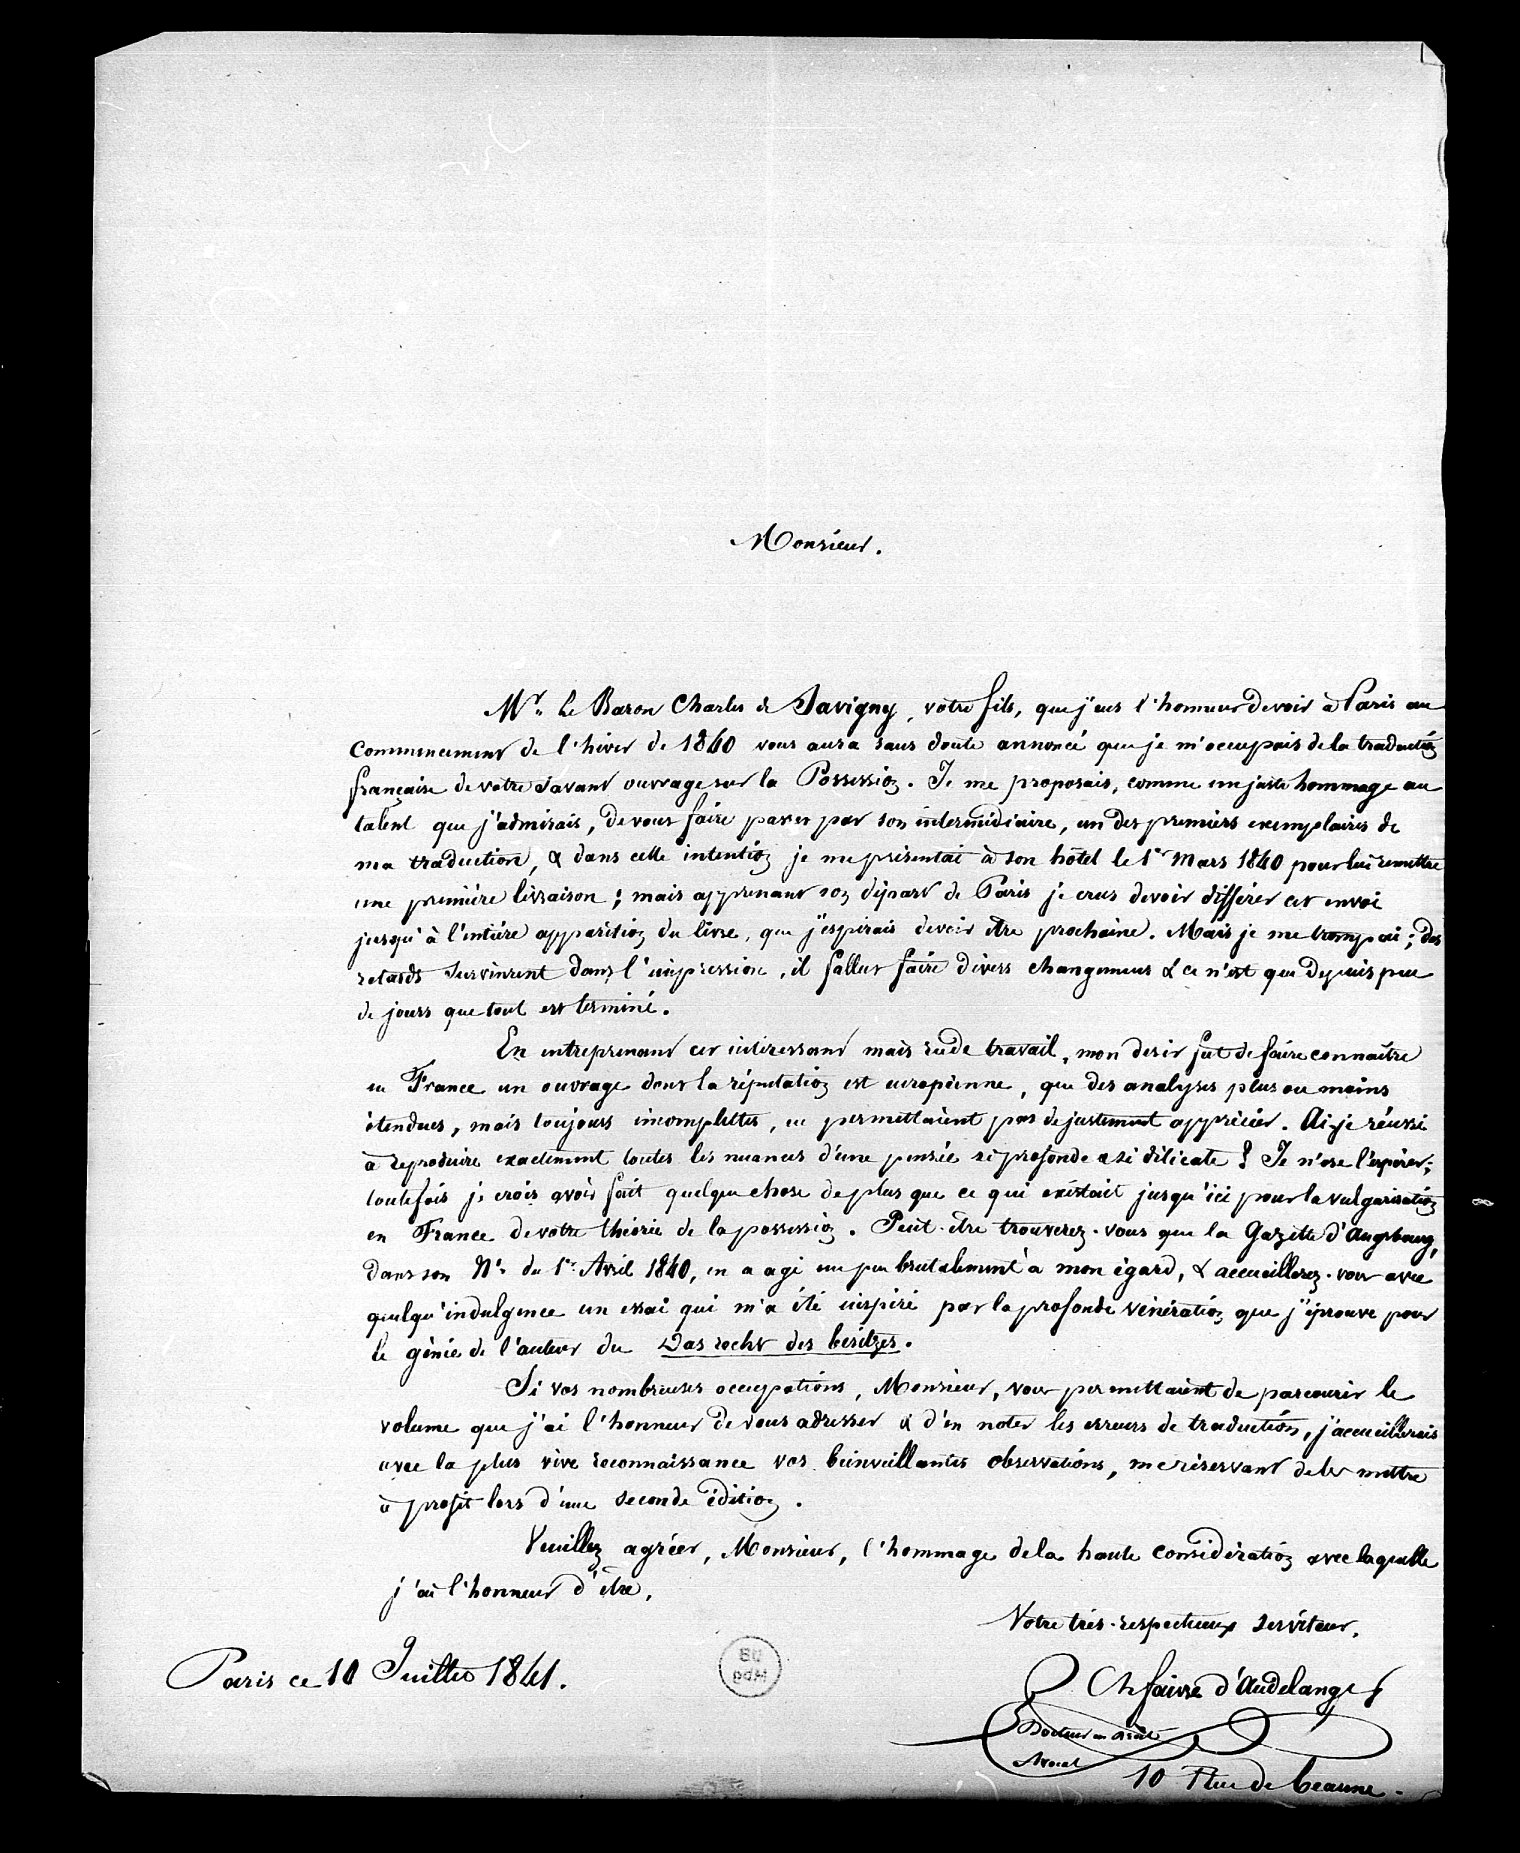 Monsieur.
Mr. le Baron Charles de Savigny, votre fils, que j'eus l'honneur de voir à Paris au
commencement de l'hiver de 1840 vous aura sans doute annoncé que je m'occupais de la traduction
française de votre savant ouvrage sur la Possession. Je me proposais, comme un juste hommage au
talent que j'admirais, de vous faire passer par son intermédiaire, un des premiers exemplaires de
ma traduction, & dans cette intention je me présentai à son hôtel le 1er Mars 1840 pour lui remettre
une première livraison ; mais apprenant son départ de Paris je crus devoir différer cet envoi
jusqu'à l'entière apparition du livre, que j'espérais devoir être prochaine. Mais je me trompai ; des
retards survinrent dans l'impression, il fallut faire divers changemens & ce n'est que depuis peu
de jours que tout est terminé.
En entreprenant cet intéressant mais rude travail, mon desir fut de faire connaître
en France un ouvrage dont la réputation est européenne, que des analyses plus ou moins
étendues, mais toujours incomplettes, ne permettaient pas de justement apprécier. Ai-je réussi
à reproduire exactement toutes les nuances d'une pensée si profonde & si délicate ? Je n'ose l'espérer ;
toutefois je crois avoir fait quelque chose de plus que ce qui existait jusqu'ici pour la vulgarisation
en France de votre théorie de la possession. Peut-être trouverez-vous que la Gazette d'Augsbourg,
dans son No. du 1er Avril 1840, en a agi un peu brutalement à mon égard, & accueillerez-vous avec
quelqu'indulgence un essai qui m'a été inspiré par la profonde vénération que j'éprouve pour
le génie de l'auteur du Das recht des besitzes.
Si vos nombreuses occupations, Monsieur, vous permettaient de parcourir le
volume que j'ai l'honneur de vous adresser & d'en noter les erreurs de traduction, j'accueillerais
avec la plus vive reconnaissance vos bienveillantes observations, me réservant de les mettre
à profit lors d'une seconde édition.
Veuillez agréer, Monsieur, l'hommage de la haute considération avec laquelle
j'ai l'honneur d'être,
Votre très-respectueux serviteur,
Paris ce 10 Juillet 1841.
Ch faivre d'Audelange
Docteur en droit
Avocat
10 Rue de beaune.